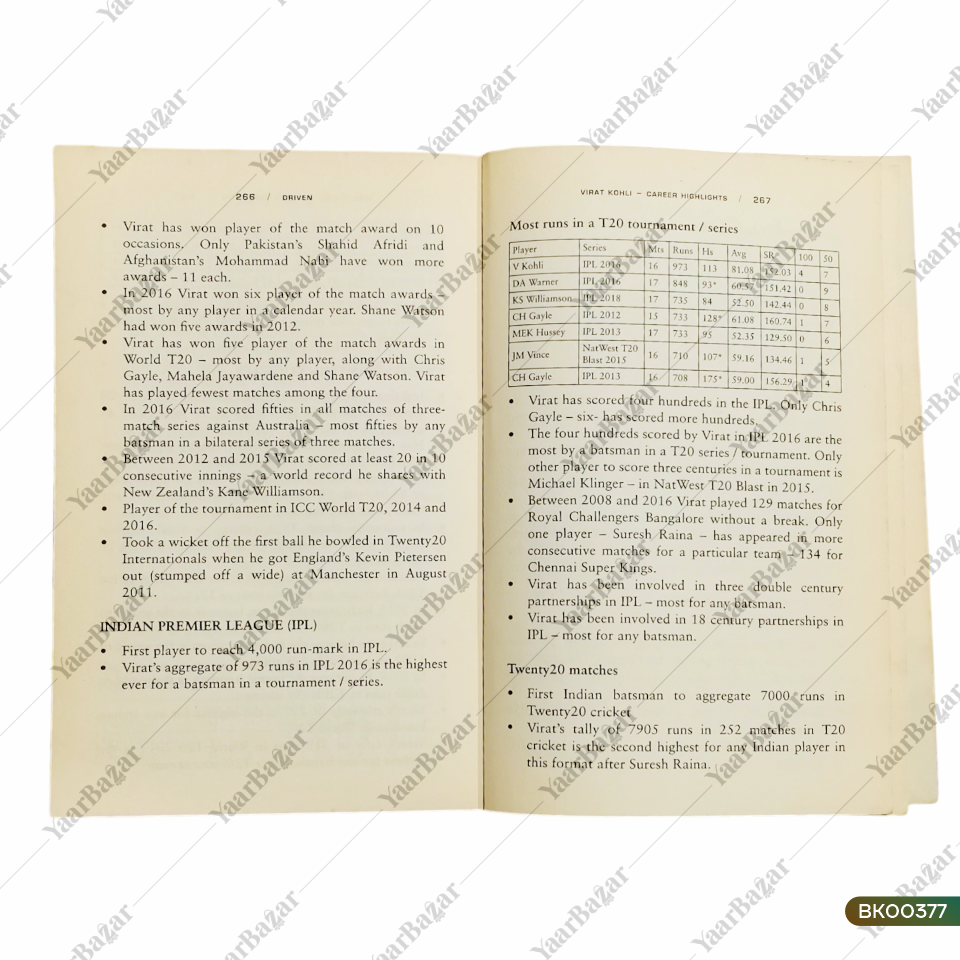 266 / DRIVEN
• Virat has won player of the match award on 10
occasions. Only Pakistan's Shahid Afridi and
Afghanistan's Mohammad Nabi have won more
awards – 11 each.
• In 2016 Virat won six player of the match awards –
most by any player in a calendar year. Shane Watson
had won five awards in 2012.
• Virat has won five player of the match awards in
World T20 – most by any player, along with Chris
Gayle, Mahela Jayawardene and Shane Watson. Virat
has played fewest matches among the four.
• In 2016 Virat scored fifties in all matches of three-
match series against Australia – most fifties by any
batsman in a bilateral series of three matches.
• Between 2012 and 2015 Virat scored at least 20 in 10
consecutive innings – a world record he shares with
New Zealand's Kane Williamson.
• Player of the tournament in ICC World T20, 2014 and
2016.
• Took a wicket off the first ball he bowled in Twenty20
Internationals when he got England's Kevin Pietersen
out (stumped off a wide) at Manchester in August
2011.
INDIAN PREMIER LEAGUE (IPL)
• First player to reach 4,000 run-mark in IPL.
• Virat's aggregate of 973 runs in IPL 2016 is the highest
ever for a batsman in a tournament / series.
VIRAT KOHLI – CAREER HIGHLIGHTS / 267
Most runs in a T20 tournament / series
Player Series Mts Runs Hs Avg SR 100 50
V Kohli IPL 2016 16 973 113 81.08 152.03 4 7
DA Warner IPL 2016 17 848 93* 60.57 151.42 0 9
KS Williamson IPL 2018 17 735 84 52.50 142.44 0 8
CH Gayle IPL 2012 15 733 128* 61.08 160.74 1 7
MEK Hussey IPL 2013 17 733 95 52.35 129.50 0 6
JM Vince NatWest T20 Blast 2015 16 710 107* 59.16 134.46 1 5
CH Gayle IPL 2013 16 708 175* 59.00 156.29 1 4
• Virat has scored four hundreds in the IPL. Only Chris
Gayle – six- has scored more hundreds.
• The four hundreds scored by Virat in IPL 2016 are the
most by a batsman in a T20 series / tournament. Only
other player to score three centuries in a tournament is
Michael Klinger – in NatWest T20 Blast in 2015.
• Between 2008 and 2016 Virat played 129 matches for
Royal Challengers Bangalore without a break. Only
one player – Suresh Raina – has appeared in more
consecutive matches for a particular team – 134 for
Chennai Super Kings.
• Virat has been involved in three double century
partnerships in IPL – most for any batsman.
• Virat has been involved in 18 century partnerships in
IPL – most for any batsman.
Twenty20 matches
• First Indian batsman to aggregate 7000 runs in
Twenty20 cricket
• Virat's tally of 7905 runs in 252 matches in T20
cricket is the second highest for any Indian player in
this format after Suresh Raina.
YaarBazar
BK00377